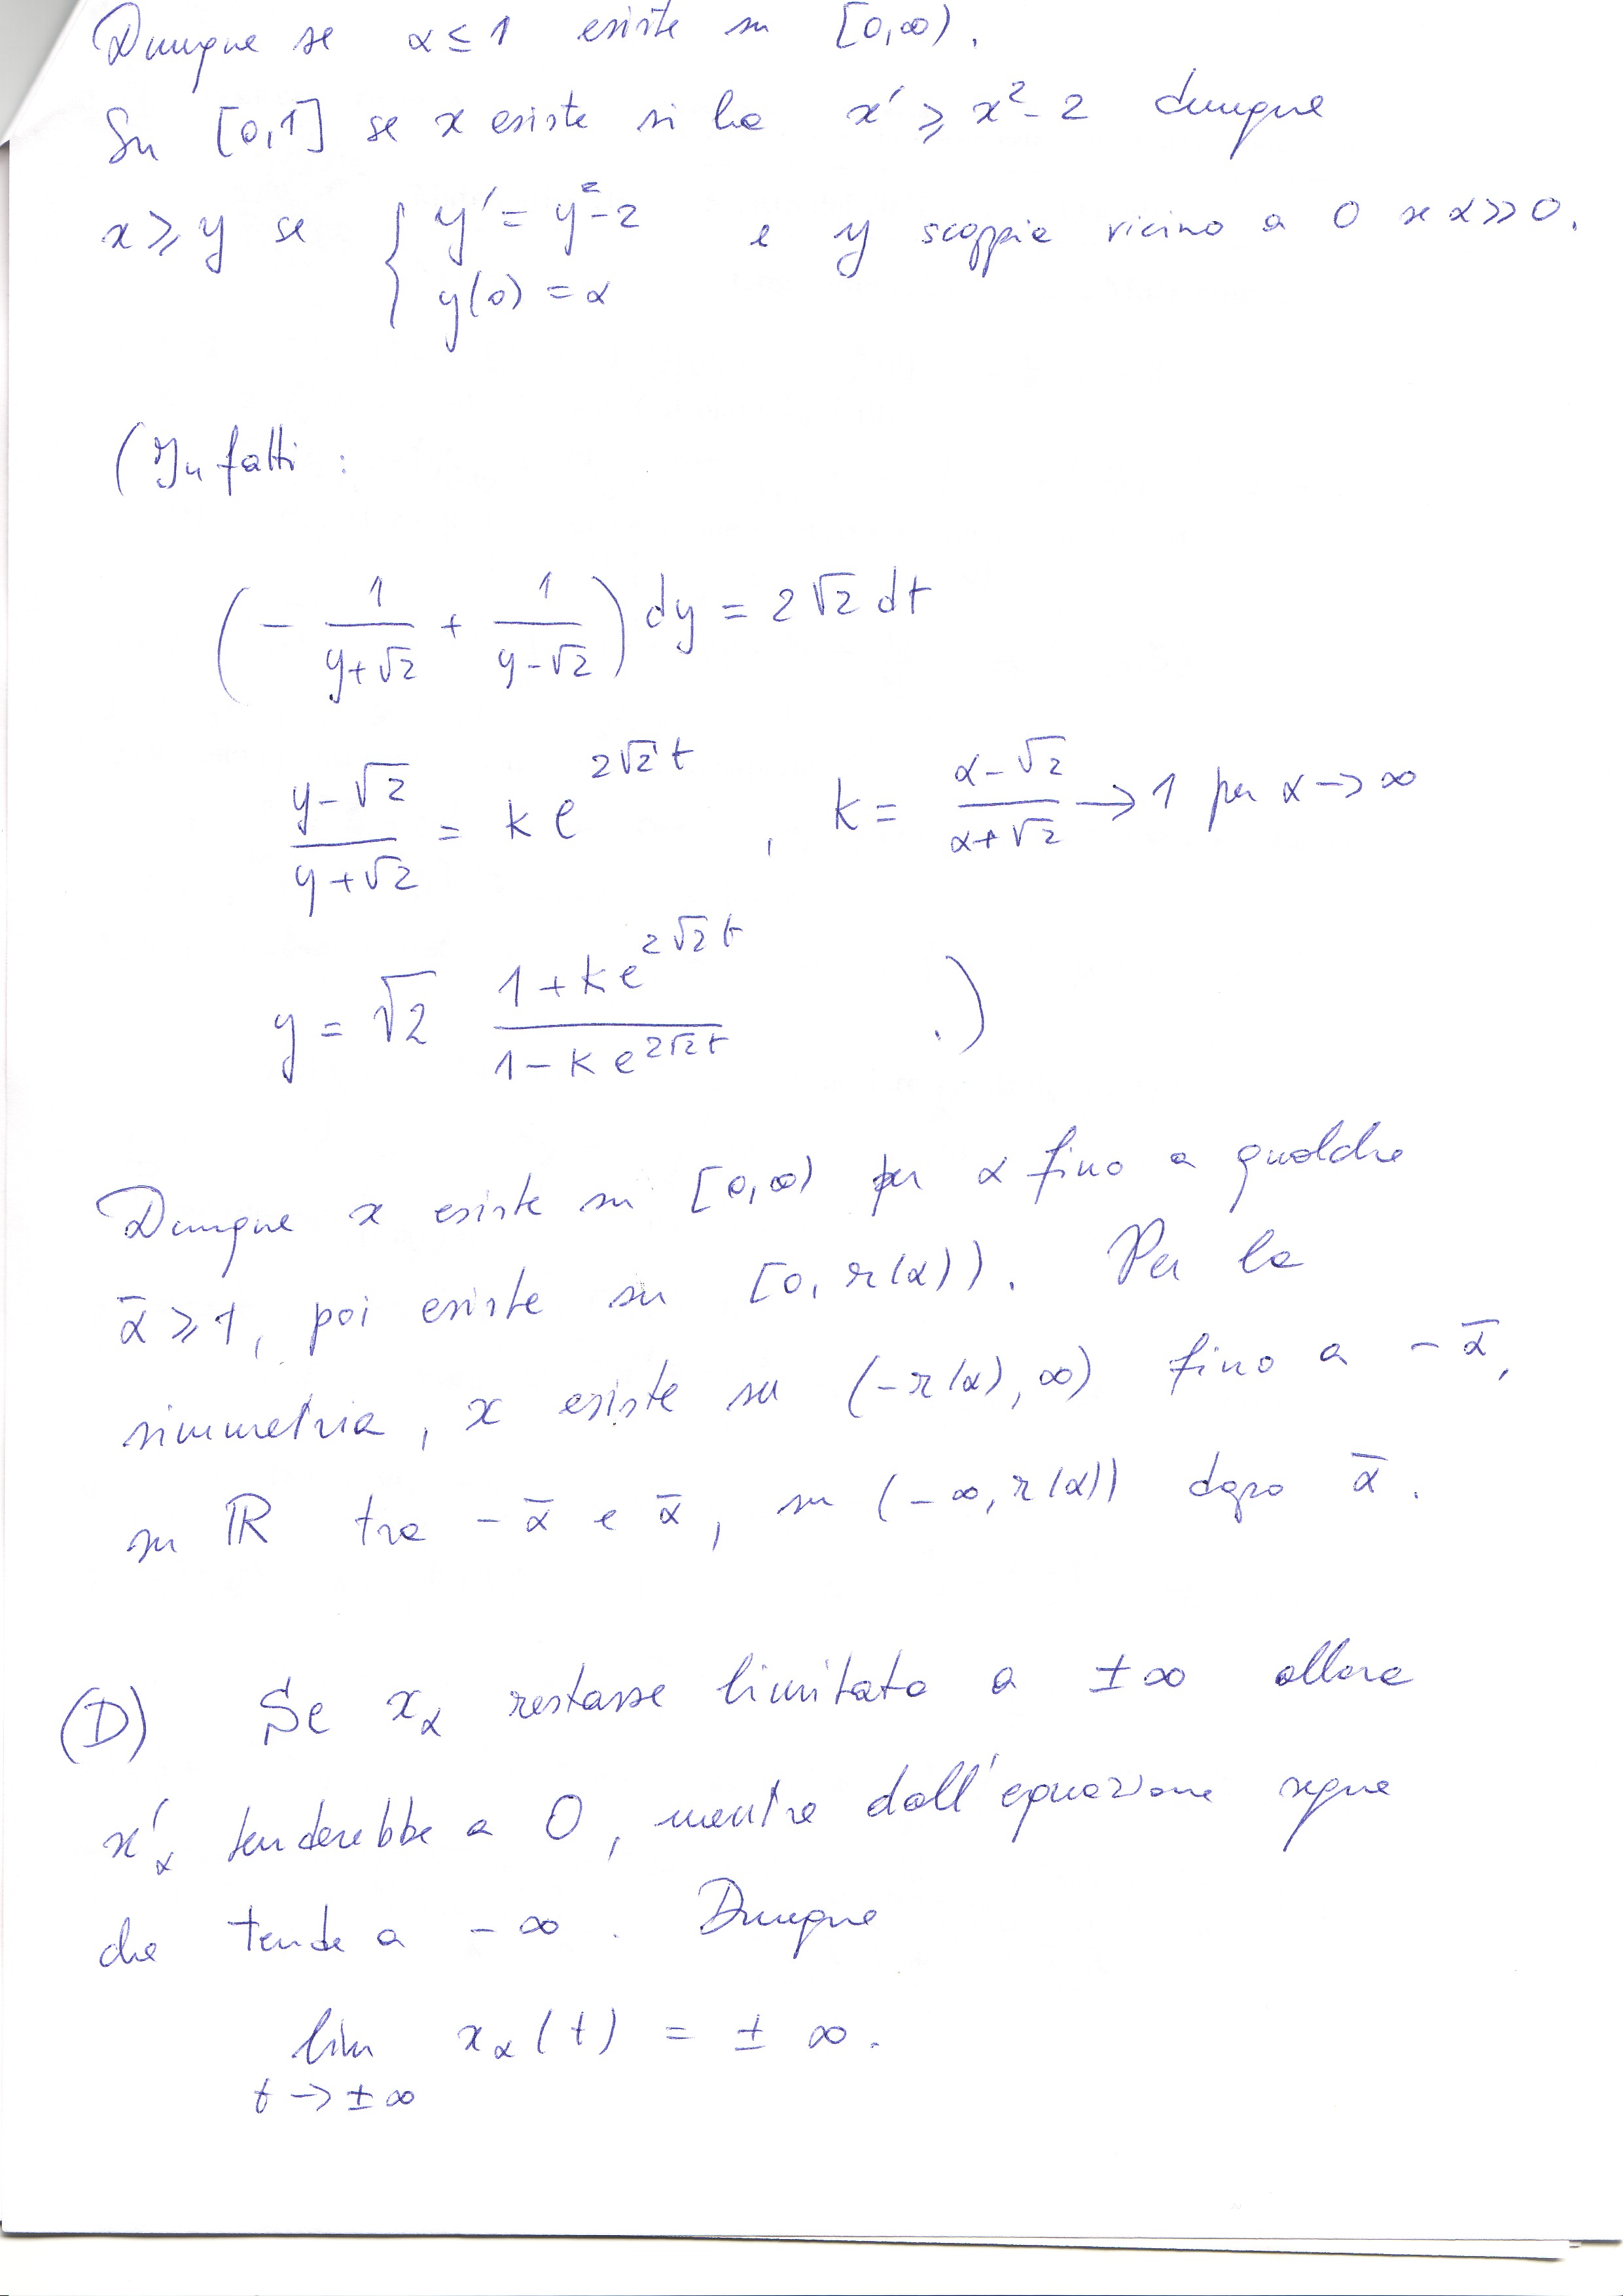 Dunque se α ≤ 1 esiste su [0,∞).
Su [0,1] se x esiste si ha x' ≥ x² - 2 dunque
x ≥ y se { y' = y² - 2 e y scoppia vicino a 0 se α >> 0.
y(0) = α
(Infatti :
( - 1/(y+√2) + 1/(y-√2) ) dy = 2√2 dt
(y-√2)/(y+√2) = k e^{2√2 t} , k = (α-√2)/(α+√2) → 1 per α → ∞
y = √2 (1 + k e^{2√2 t})/(1 - k e^{2√2 t}) .)
Dunque x esiste su [0,∞) per α fino a qualche
ᾱ ≥ 1, poi esiste su [0, r(α)). Per la
simmetria, x esiste su (-r(α), ∞) fino a -ᾱ,
su ℝ tra -ᾱ e ᾱ, su (-∞, r(α)) dopo ᾱ.
(D) Se x_α restasse limitata a ±∞ allora
x'_α tenderebbe a 0, mentre dall'equazione segue
che tende a -∞. Dunque
lim x_α(t) = ±∞.
t → ±∞